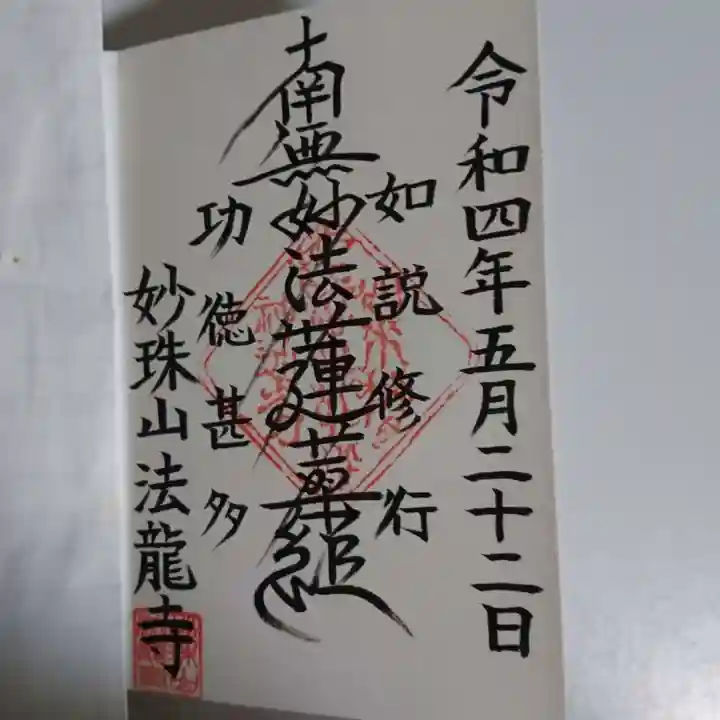 令和四年五月二十二日
如説修行
南無妙法蓮華経
功徳甚多
妙珠山法龍寺